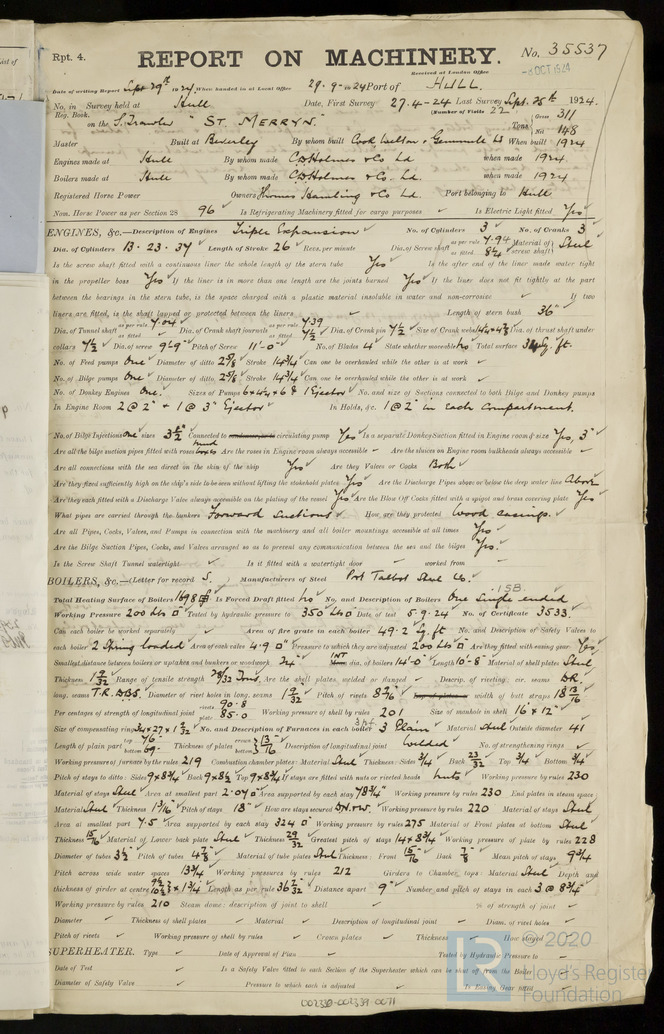 Rpt. 4.
REPORT ON MACHINERY.
No. 35537
Received at London Office
-8 OCT 1924
Date of writing Report Sept 29th 1924 When handed in at Local Office 29-9-1924 Port of HULL.
No. in Survey held at Hull Date, First Survey 27.4-24 Last Survey Sept. 25th 1924.
Reg. Book. (Number of Visits 22)
on the S. Trawler "ST. MERRYN." Tons Gross 311 Net 148
Master Built at Beverley By whom built Cook, Welton & Gemmell Ld When built 1924
Engines made at Hull By whom made C.D. Holmes & Co. Ld. when made 1924.
Boilers made at Hull By whom made C.D. Holmes & Co. Ld. when made 1924.
Registered Horse Power Owners Thomas Hamling & Co Ld. Port belonging to Hull
Nom. Horse Power as per Section 28 96 Is Refrigerating Machinery fitted for cargo purposes Is Electric Light fitted Yes
ENGINES, &c.—Description of Engines Triple Expansion No. of Cylinders 3 No. of Cranks 3
Dia. of Cylinders 13-23-37 Length of Stroke 26 Revs. per minute Dia. of Screw shaft as per rule 7.94 as fitted 8¼ Material of screw shaft Steel
Is the screw shaft fitted with a continuous liner the whole length of the stern tube Yes Is the after end of the liner made water tight
in the propeller boss Yes If the liner is in more than one length are the joints burned Yes If the liner does not fit tightly at the part
between the bearings in the stern tube, is the space charged with a plastic material insoluble in water and non-corrosive If two
liners are fitted, is the shaft lapped or protected between the liners Length of stern bush 36"
Dia. of Tunnel shaft as per rule 7.04 as fitted Dia. of Crank shaft journals as per rule 7.39 as fitted 7½ Dia. of Crank pin 7½ Size of Crank webs 14¼ x 4⅞ Dia. of thrust shaft under
collars 7½ Dia. of screw 9'-9" Pitch of Screw 11'-0" No. of Blades 4 State whether moveable No Total surface sq. ft.
No. of Feed pumps One Diameter of ditto 2⅝ Stroke 14¾ Can one be overhauled while the other is at work
No. of Bilge pumps One Diameter of ditto 2⅝ Stroke 14¾ Can one be overhauled while the other is at work
No. of Donkey Engines One. Sizes of Pumps 1 Ejector No. and size of Suctions connected to both Bilge and Donkey pumps
In Engine Room 2 @ 2" + 1 @ 3" Ejector In Holds, &c. 1 @ 2" in each compartment.
No. of Bilge Injections One sizes 3½ Connected to circulating pump Yes Is a separate Donkey Suction fitted in Engine room & size Yes, 3"
Are all the bilge suction pipes fitted with roses mud boxes Are the roses in Engine room always accessible Are the sluices on Engine room bulkheads always accessible
Are all connections with the sea direct on the skin of the ship Yes Are they Valves or Cocks Both
Are they fixed sufficiently high on the ship's side to be seen without lifting the stokehold plates Yes Are the Discharge Pipes above or below the deep water line Above
Are they each fitted with a Discharge Valve always accessible on the plating of the vessel Yes Are the Blow Off Cocks fitted with a spigot and brass covering plate Yes
What pipes are carried through the bunkers Forward Suctions How are they protected Wood casings.
Are all Pipes, Cocks, Valves, and Pumps in connection with the machinery and all boiler mountings accessible at all times Yes
Are the Bilge Suction Pipes, Cocks, and Valves arranged so as to prevent any communication between the sea and the bilges Yes.
Is the Screw Shaft Tunnel watertight Is it fitted with a watertight door worked from
BOILERS, &c.—(Letter for record S. Manufacturers of Steel Port Talbot Steel Co.
1 S.B.
Total Heating Surface of Boilers 1698 Is Forced Draft fitted No No. and Description of Boilers One Single ended
Working Pressure 200 lbs Tested by hydraulic pressure to 350 lbs Date of test 5.9.24 No. of Certificate 3533.
Can each boiler be worked separately Area of fire grate in each boiler 49.2 sq. ft No. and Description of Safety Valves to
each boiler 2 Spring loaded Area of each valve 4.9 Pressure to which they are adjusted 200 lbs Are they fitted with easing gear Yes
Smallest distance between boilers or uptakes and bunkers or woodwork 24" INT dia. of boilers 14'-0" Length 10'-8" Material of shell plates Steel
Thickness 1 9/32 Range of tensile strength 28/32 Tons. Are the shell plates welded or flanged Descrip. of riveting: cir. seams D.R.
long. seams T.R.D.B.S. Diameter of rivet holes in long. seams 1 9/32 Pitch of rivets 8 9/16 width of butt straps 18 13/16
Per centages of strength of longitudinal joint rivets 90.8 plate 85.0 Working pressure of shell by rules 201 Size of manhole in shell 16" x 12"
Size of compensating ring 34 x 27 x 1 9/32 No. and Description of Furnaces in each boiler 3 Plain Material Steel Outside diameter 41
Length of plain part top 76 bottom 69 Thickness of plates crown bottom 13/16 Description of longitudinal joint Welded No. of strengthening rings
Working pressure of furnace by the rules 219 Combustion chamber plates: Material Steel Thickness: Sides ¾ Back 23/32 Top ¾ Bottom ¾
Pitch of stays to ditto: Sides 9 x 8¾ Back 9 x 8½ Top 9 x 8¾ If stays are fitted with nuts or riveted heads Nuts Working pressure by rules 230
Material of stays Steel Area at smallest part 2.07 Area supported by each stay 78¾ Working pressure by rules 230 End plates in steam space
Material Steel Thickness 1 3/16 Pitch of stays 18" How are stays secured D.N.&W. Working pressure by rules 220 Material of stays Steel
Area at smallest part 7.5 Area supported by each stay 324 Working pressure by rules 275 Material of Front plates at bottom Steel
Thickness 15/16 Material of Lower back plate Steel Thickness 29/32 Greatest pitch of stays 14 x 8¾ Working pressure of plate by rules 228
Diameter of tubes 3½ Pitch of tubes 4⅞ Material of tube plates Steel Thickness: Front 15/16 Back ⅞ Mean pitch of stays 9¾
Pitch across wide water spaces 13¾ Working pressures by rules 212 Girders to Chamber tops: Material Steel Depth and
thickness of girder at centre Length as per rule 36 Distance apart 9" Number and pitch of stays in each 3 @ 8¾
Working pressure by rules 210 Steam dome: description of joint to shell % of strength of joint
Diameter Thickness of shell plates Material Description of longitudinal joint Diam. of rivet holes
Pitch of rivets Working pressure of shell by rules Crown plates Thickness How stayed
SUPERHEATER. Type Date of Approval of Plan Tested by Hydraulic Pressure to
Date of Test Is a Safety Valve fitted to each Section of the Superheater which can be shut off from the Boiler
Diameter of Safety Valve Pressure to which each is adjusted Is Easing Gear fitted
© 2020
Lloyd's Register
Foundation
002330-002339-0071